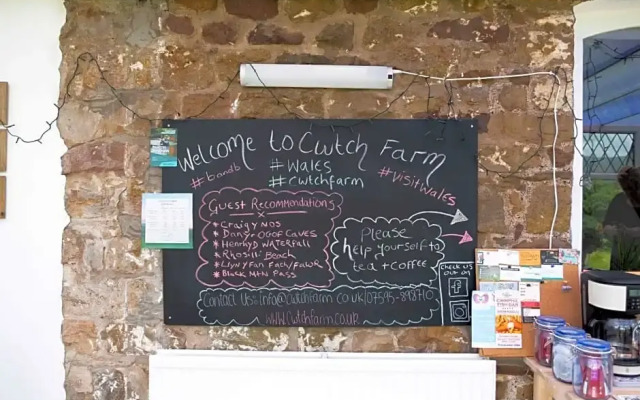 Welcome to Cwtch Farm
#bandb
#Wales
#cwtchfarm
#visitwales
Guest Recommendations
* Craig y Nos
* Dan yr Ogof Caves
* Henrhyd Waterfall
* Rhossili Beach
* Black Mtn Pass
Please
help yourself to
tea + coffee
Check us
out on
Contact Us: info@cwtchfarm.co.uk/07595-898710
www.cwtchfarm.co.uk